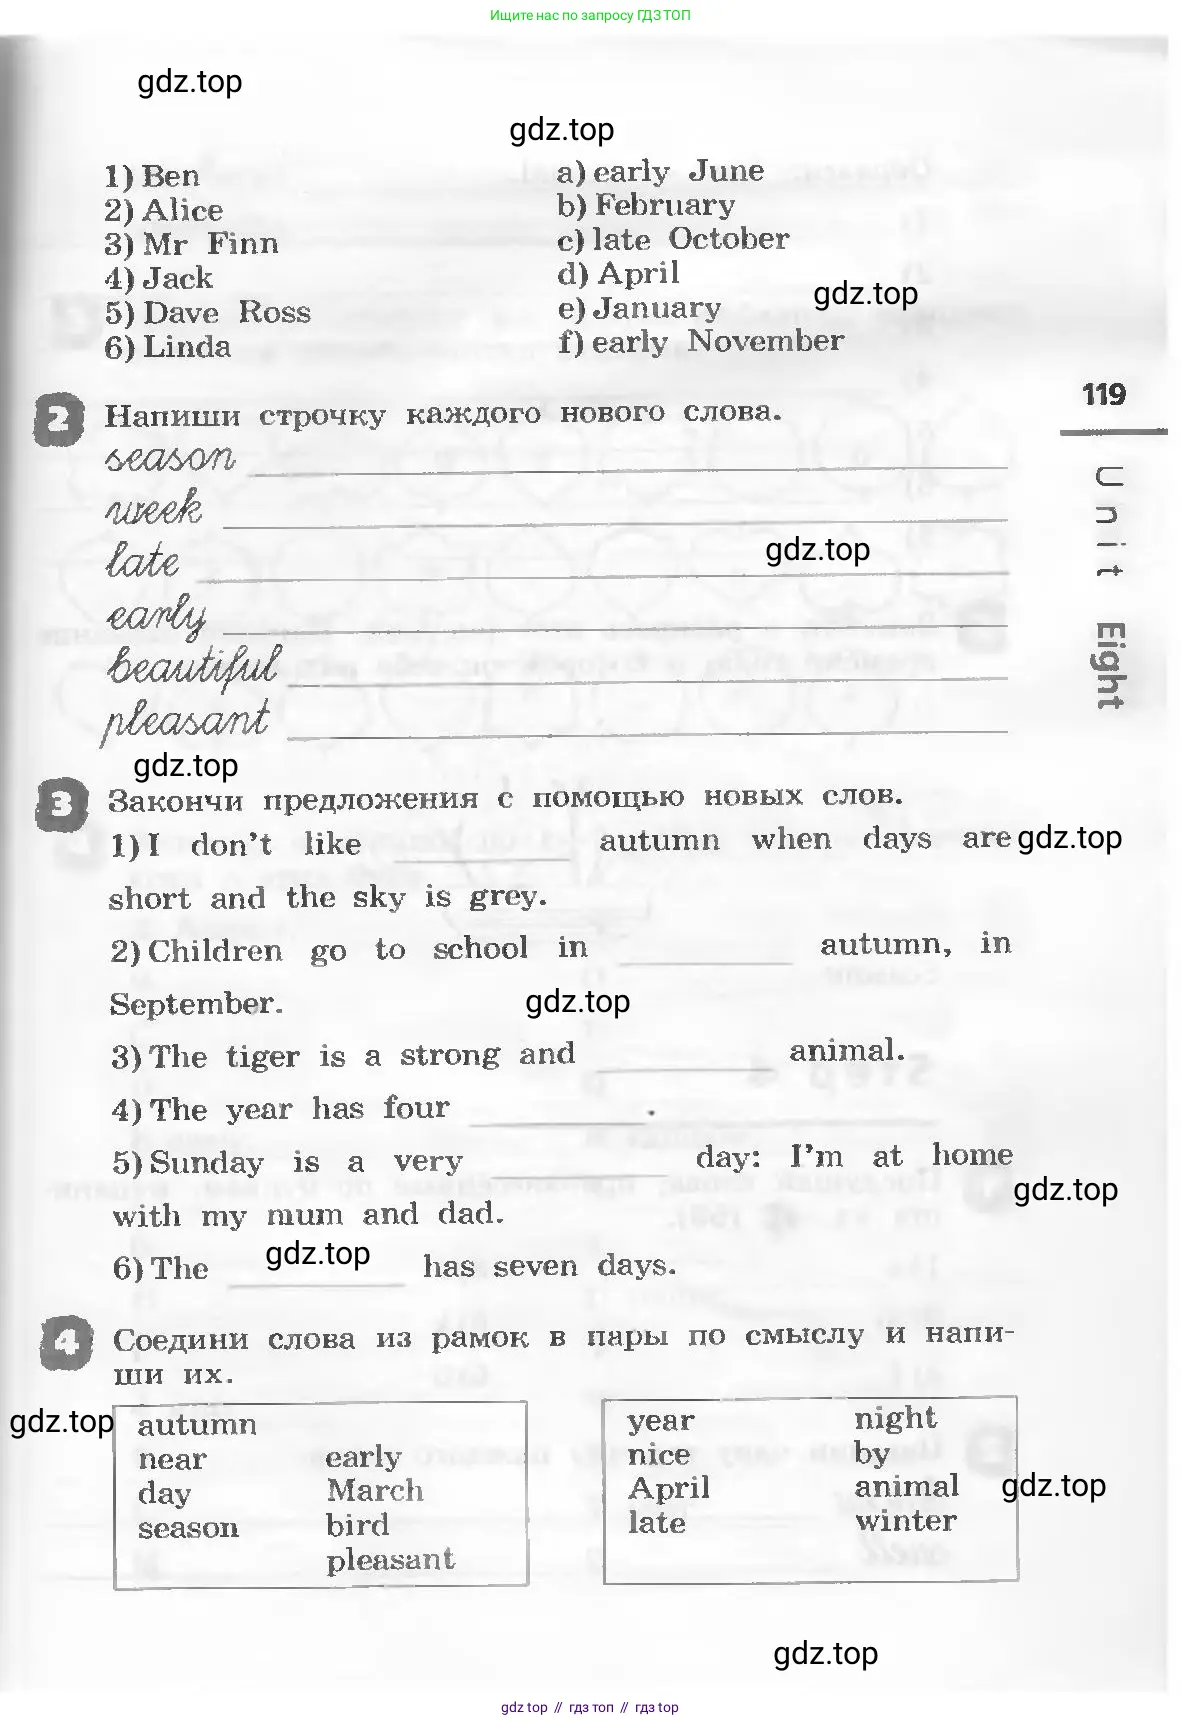 Ищите нас по запросу ГДЗ ТОП
gdz.top
gdz.top
1) Ben
2) Alice
3) Mr Finn
4) Jack
5) Dave Ross
6) Linda
a) early June
b) February
c) late October
d) April
e) January
f) early November
gdz.top
119
Unit Eight
2 Напиши строчку каждого нового слова.
season
week
late
gdz.top
early
beautiful
pleasant
gdz.top
3 Закончи предложения с помощью новых слов.
1) I don't like ___ autumn when days are
gdz.top
short and the sky is grey.
2) Children go to school in ___ autumn, in
September.
gdz.top
3) The tiger is a strong and ___ animal.
4) The year has four ___.
5) Sunday is a very ___ day: I'm at home
gdz.top
with my mum and dad.
6) The ___ has seven days.
gdz.top
4 Соедини слова из рамок в пары по смыслу и напи-
ши их.
gdz.top
autumn
near
day
season
early
March
bird
pleasant
year
nice
April
late
night
by
animal
winter
gdz.top
gdz.top
gdz top // гдз топ // гдз top